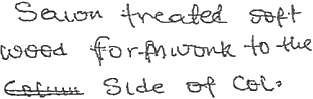 Sawn treated soft
wood formwork to the
Side of Col.